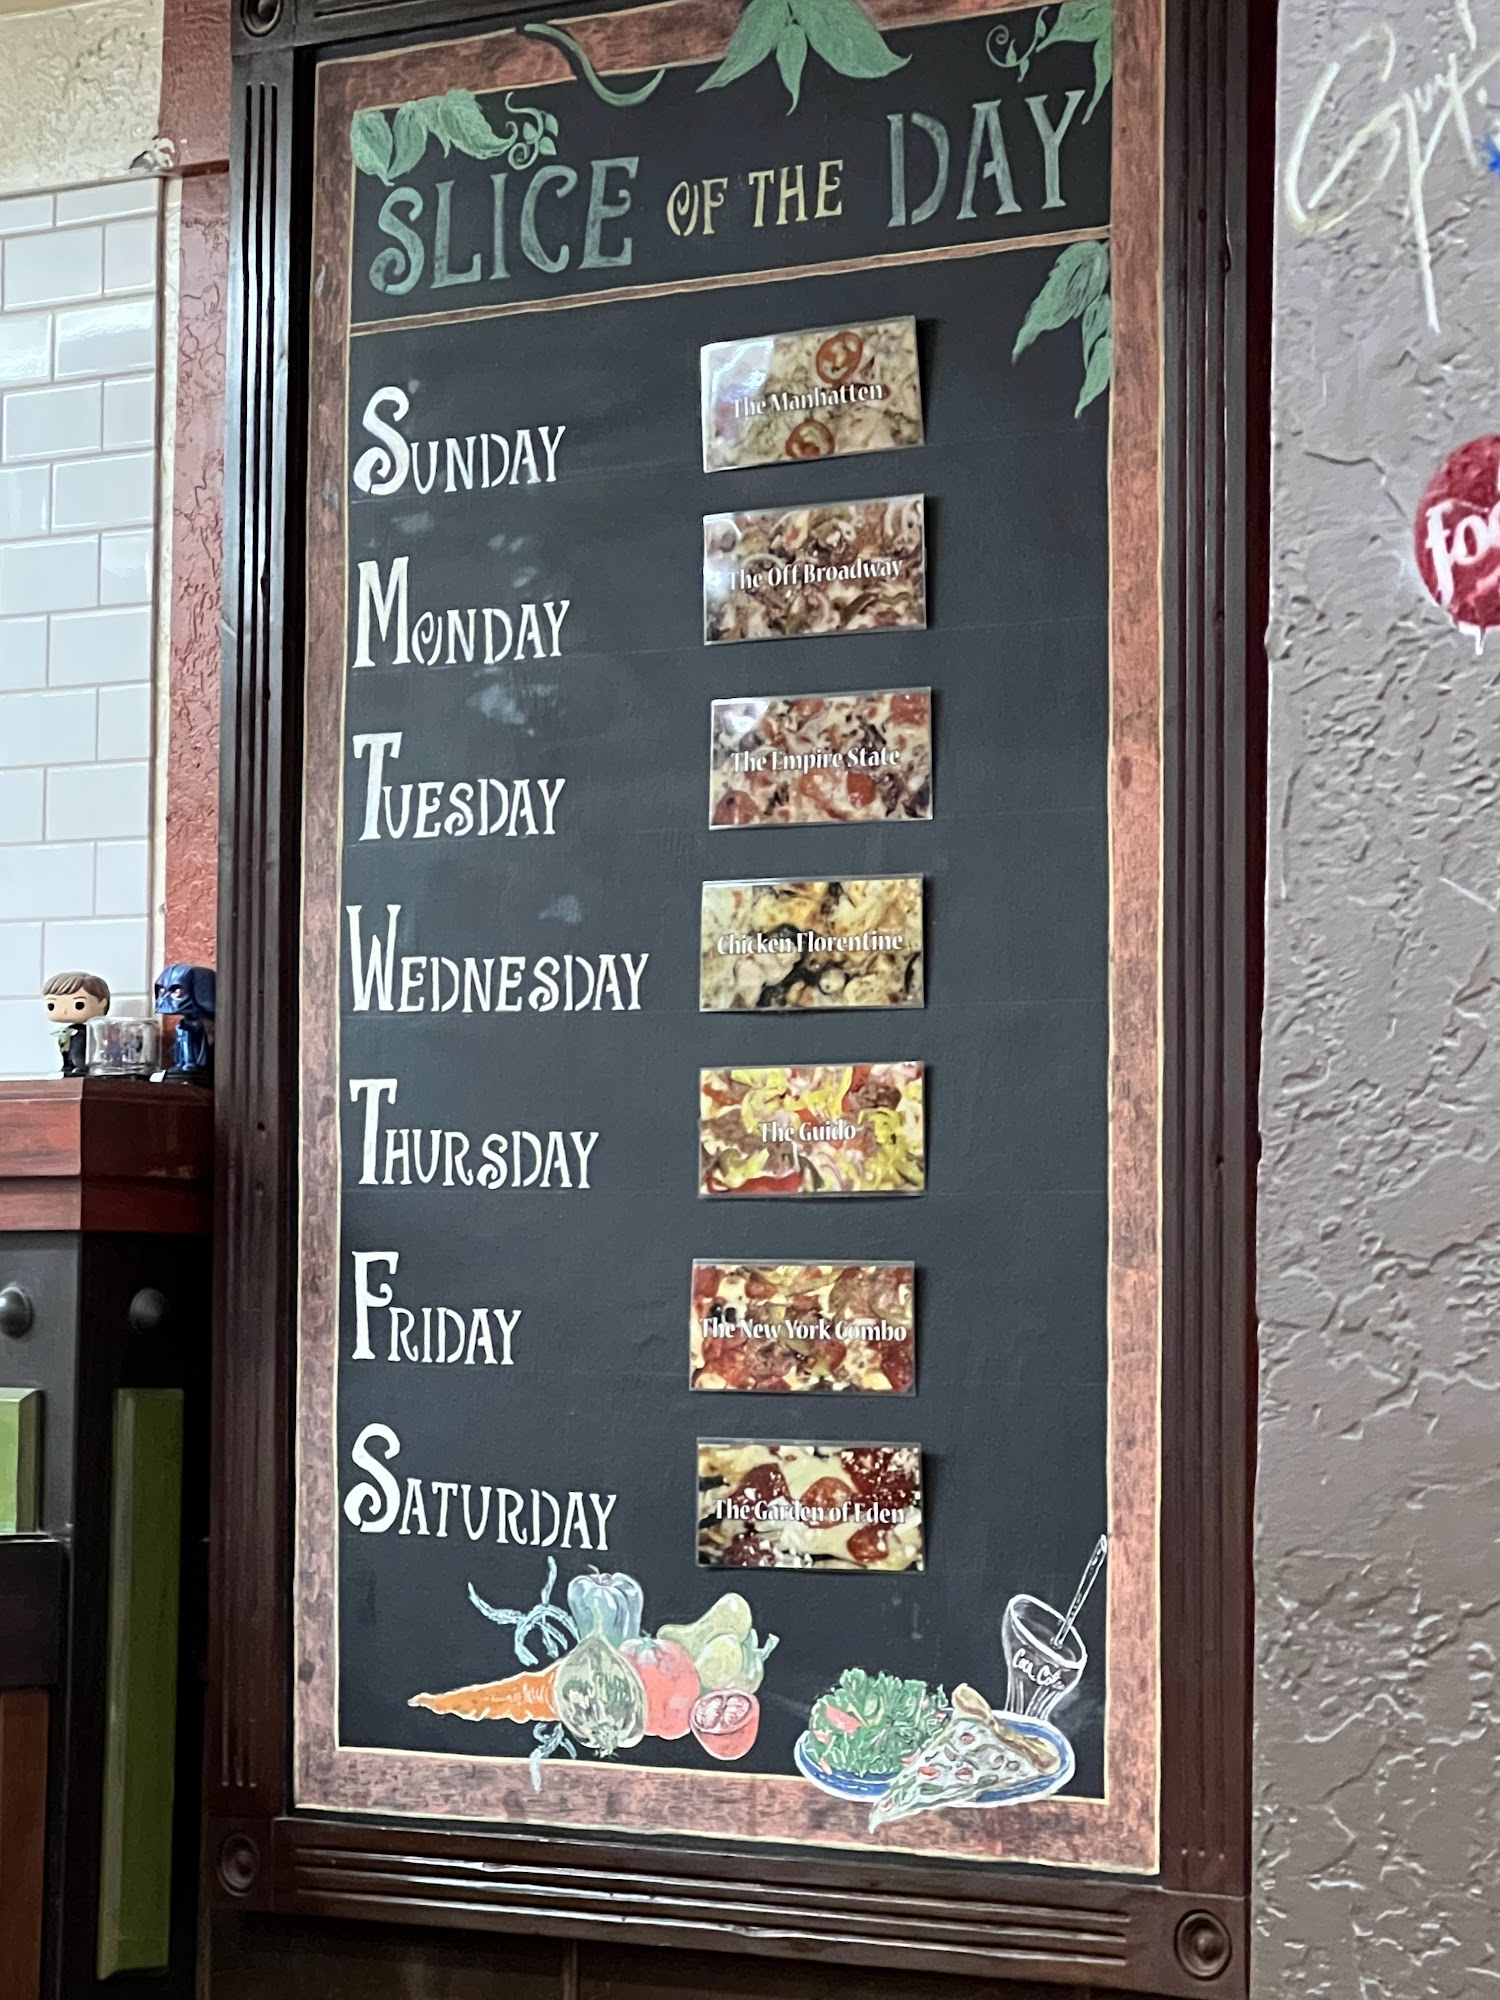 SLICE OF THE DAY
SUNDAY
The Manhatten
MONDAY
The Off Broadway
TUESDAY
The Empire State
WEDNESDAY
Chicken Florentine
THURSDAY
The Guido
FRIDAY
The New York Combo
SATURDAY
The Garden of Eden